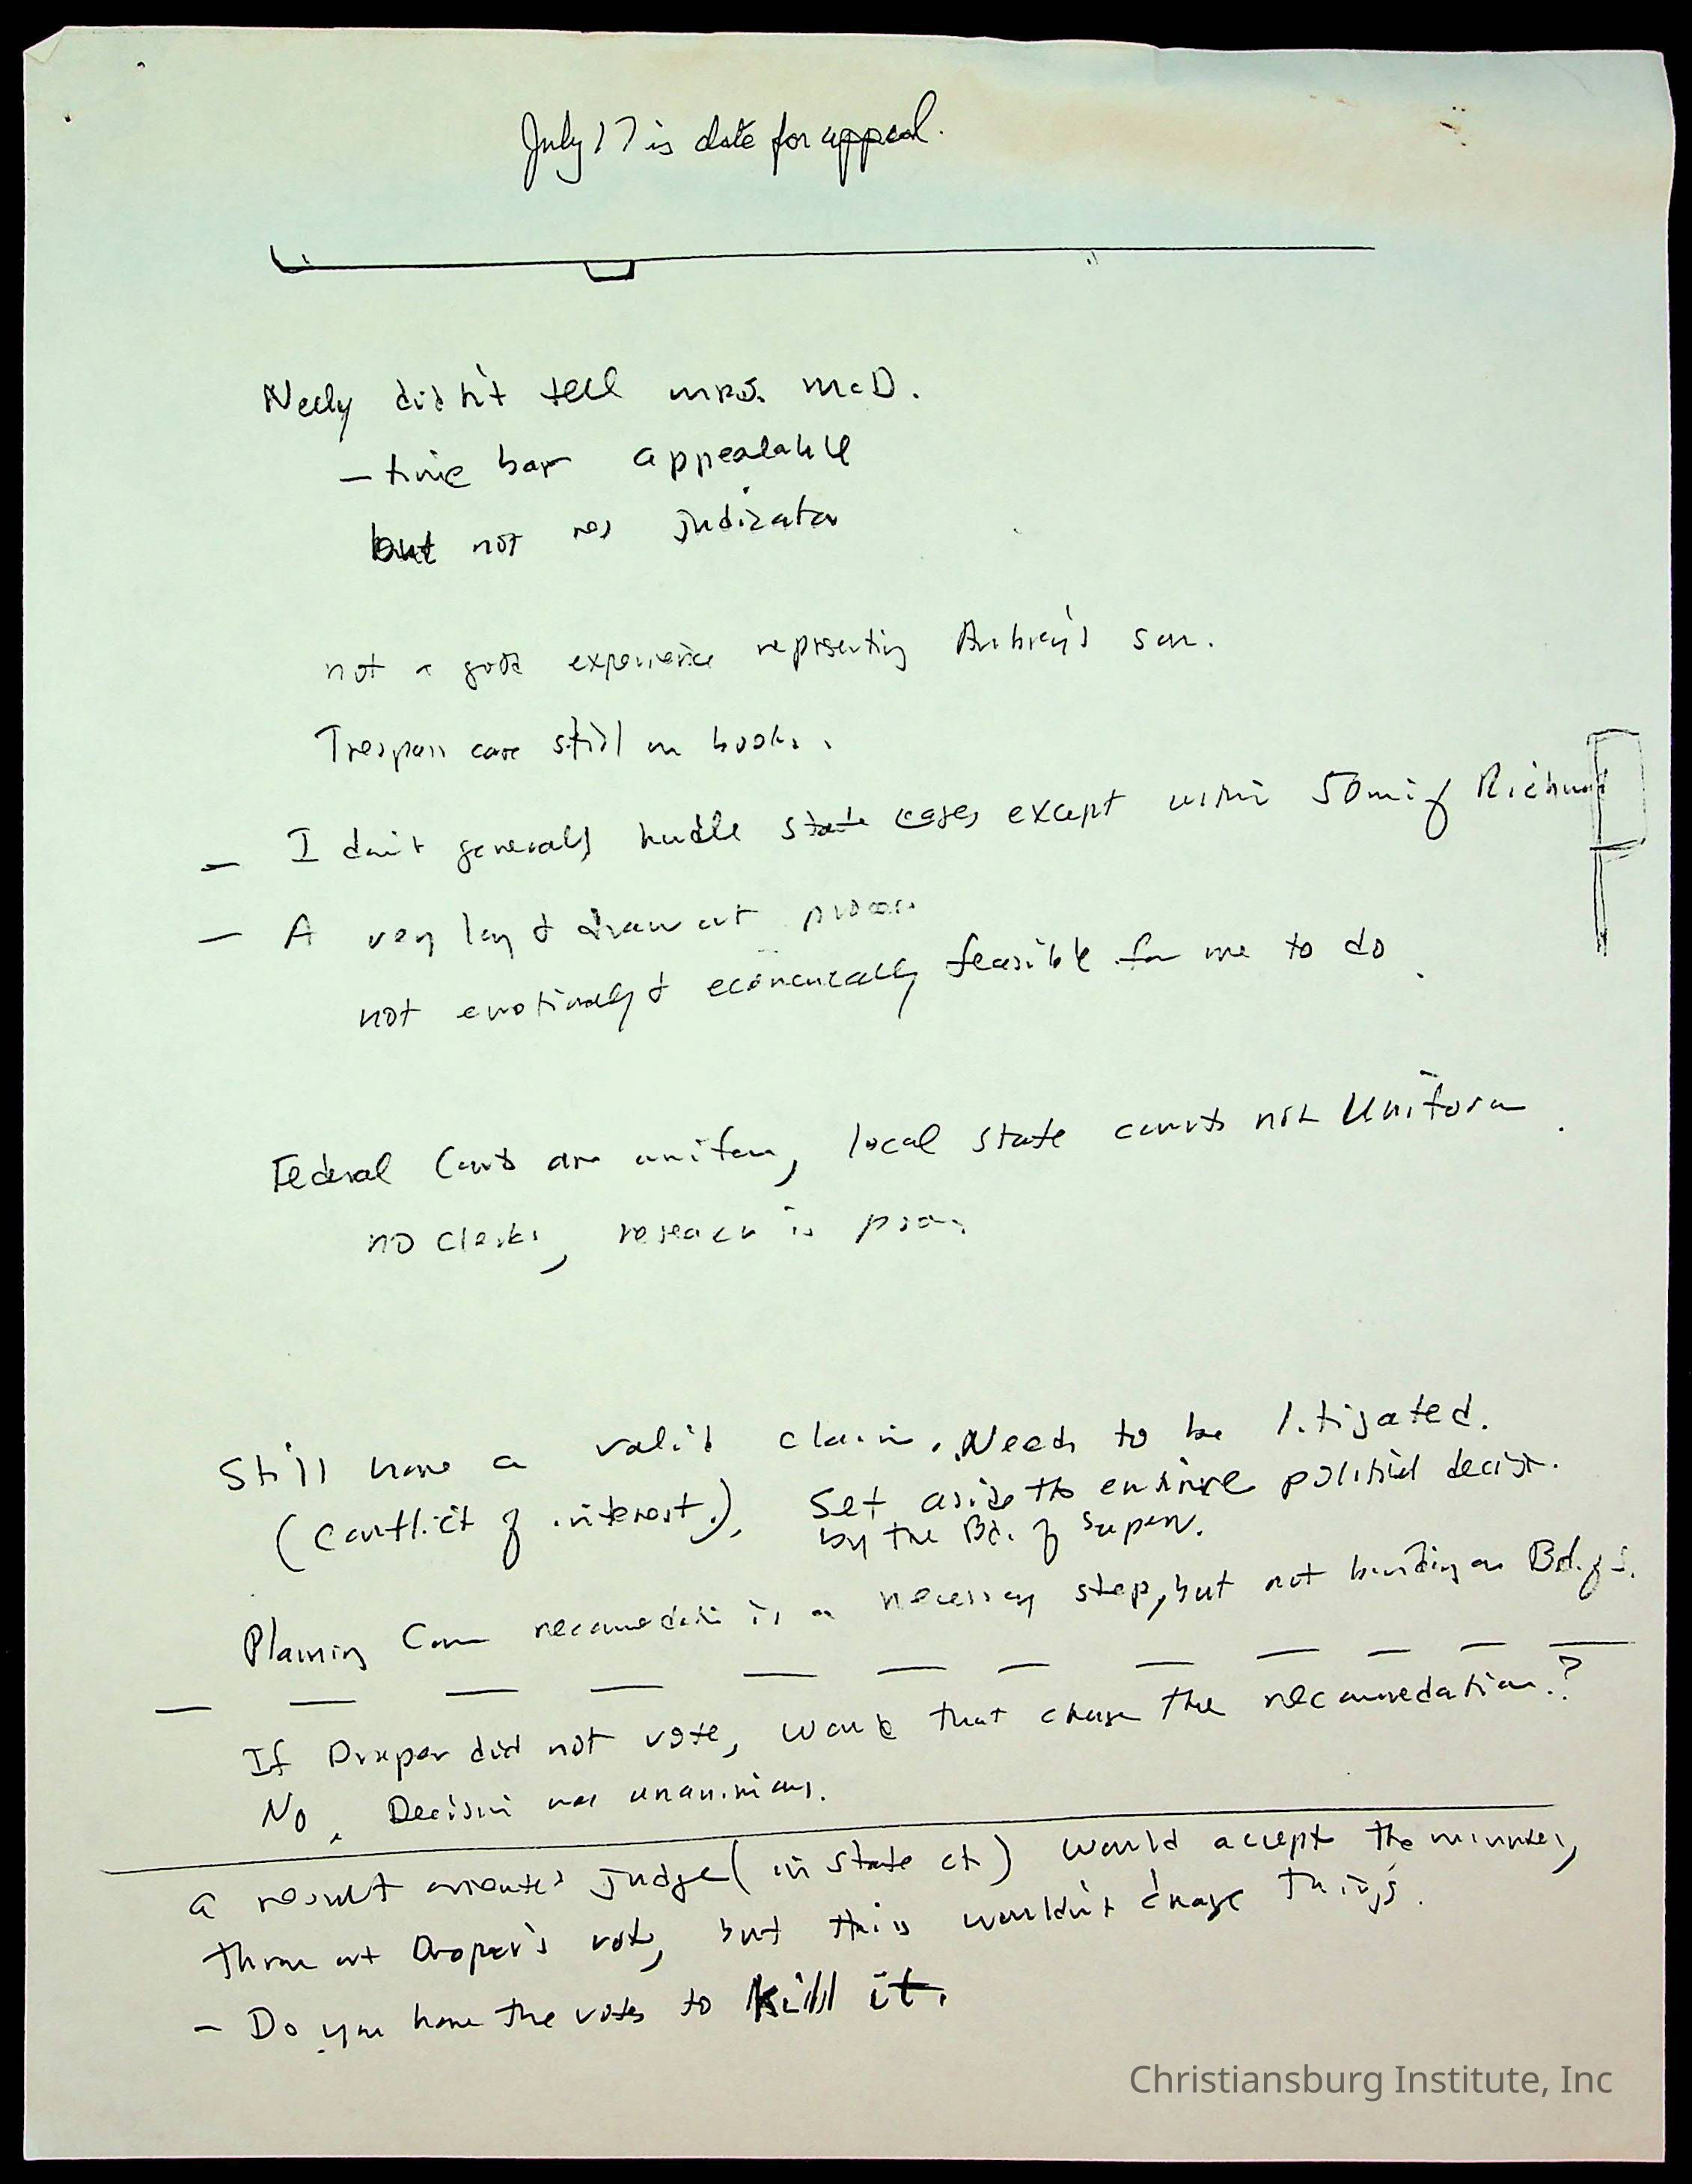 July 17 is date for appeal.
Neely didn't tell mrs. McD.
- time bar appealable
but not res judicata
not a good experience representing Aubrey's son.
Trespass case still on books.
- I don't generally handle state cases except within 50 mi of Richmond
- A very long & drawn out process
not emotionally & economically feasible for me to do.
Federal Courts are uniform, local state courts not Uniform.
no clerks, research is poor,
Still have a valid claim. Needs to be litigated.
(Conflict of interest.), Set aside the entire political decision.
by the Bd. of Superv.
Planning Comm recomendation is a necessary step, but not binding on Bd. of S.
If Draper did not vote, would that change the recommedation.?
No. Decision was unanimous.
a result oriented judge (in state ct) would accept the minutes,
throw out Draper's vote, but this wouldn't change things.
- Do you have the votes to kill it.
Christiansburg Institute, Inc